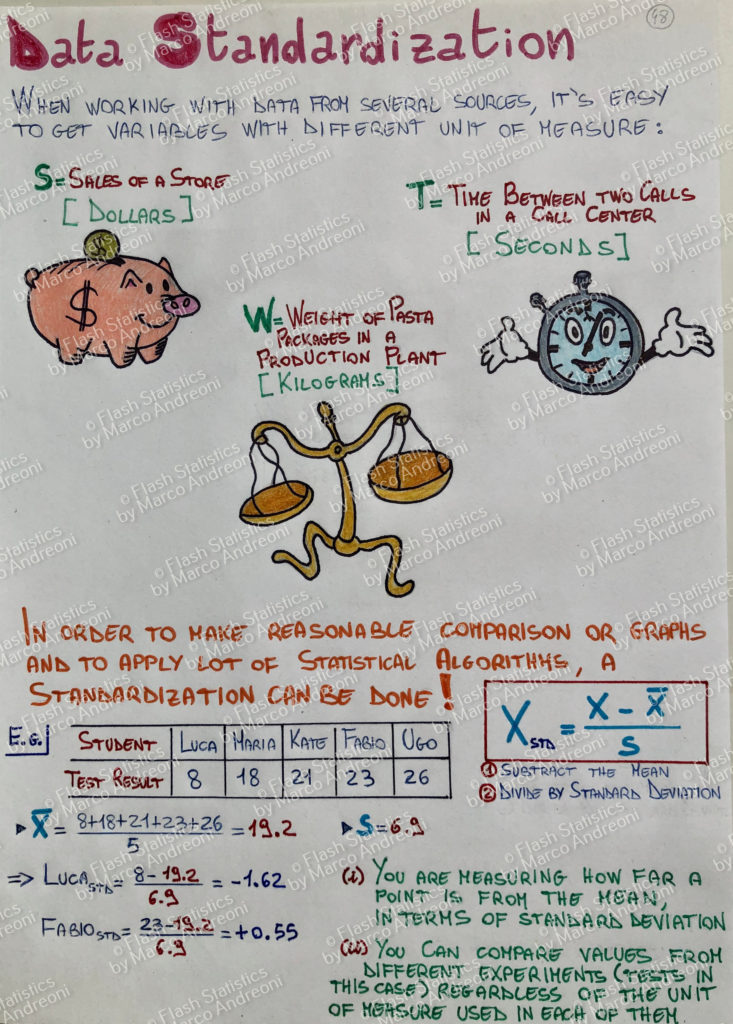 48
Data Standardization
WHEN WORKING WITH DATA FROM SEVERAL SOURCES, IT'S EASY
TO GET VARIABLES WITH DIFFERENT UNIT OF MEASURE:
S = SALES OF A STORE
[DOLLARS]
$
T = TIME BETWEEN TWO CALLS
IN A CALL CENTER
[SECONDS]
W = WEIGHT OF PASTA
PACKAGES IN A
PRODUCTION PLANT
[KILOGRAMS]
IN ORDER TO MAKE REASONABLE COMPARISON OR GRAPHS
AND TO APPLY LOT OF STATISTICAL ALGORITHMS, A
STANDARDIZATION CAN BE DONE!
X_STD = (X - X̅) / S
① SUBTRACT THE MEAN
② DIVIDE BY STANDARD DEVIATION
E.G.
STUDENT | LUCA | MARIA | KATE | FABIO | UGO
TEST RESULT | 8 | 18 | 21 | 23 | 26
▸ X̅ = (8+18+21+23+26) / 5 = 19.2
▸ S = 6.9
=> LUCA_STD = (8 - 19.2) / 6.9 = -1.62
FABIO_STD = (23 - 19.2) / 6.9 = +0.55
(i) YOU ARE MEASURING HOW FAR A
POINT IS FROM THE MEAN,
IN TERMS OF STANDARD DEVIATION
(ii) YOU CAN COMPARE VALUES FROM
DIFFERENT EXPERIMENTS (TESTS IN
THIS CASE) REGARDLESS OF THE UNIT
OF MEASURE USED IN EACH OF THEM
© Flash Statistics
by Marco Andreoni